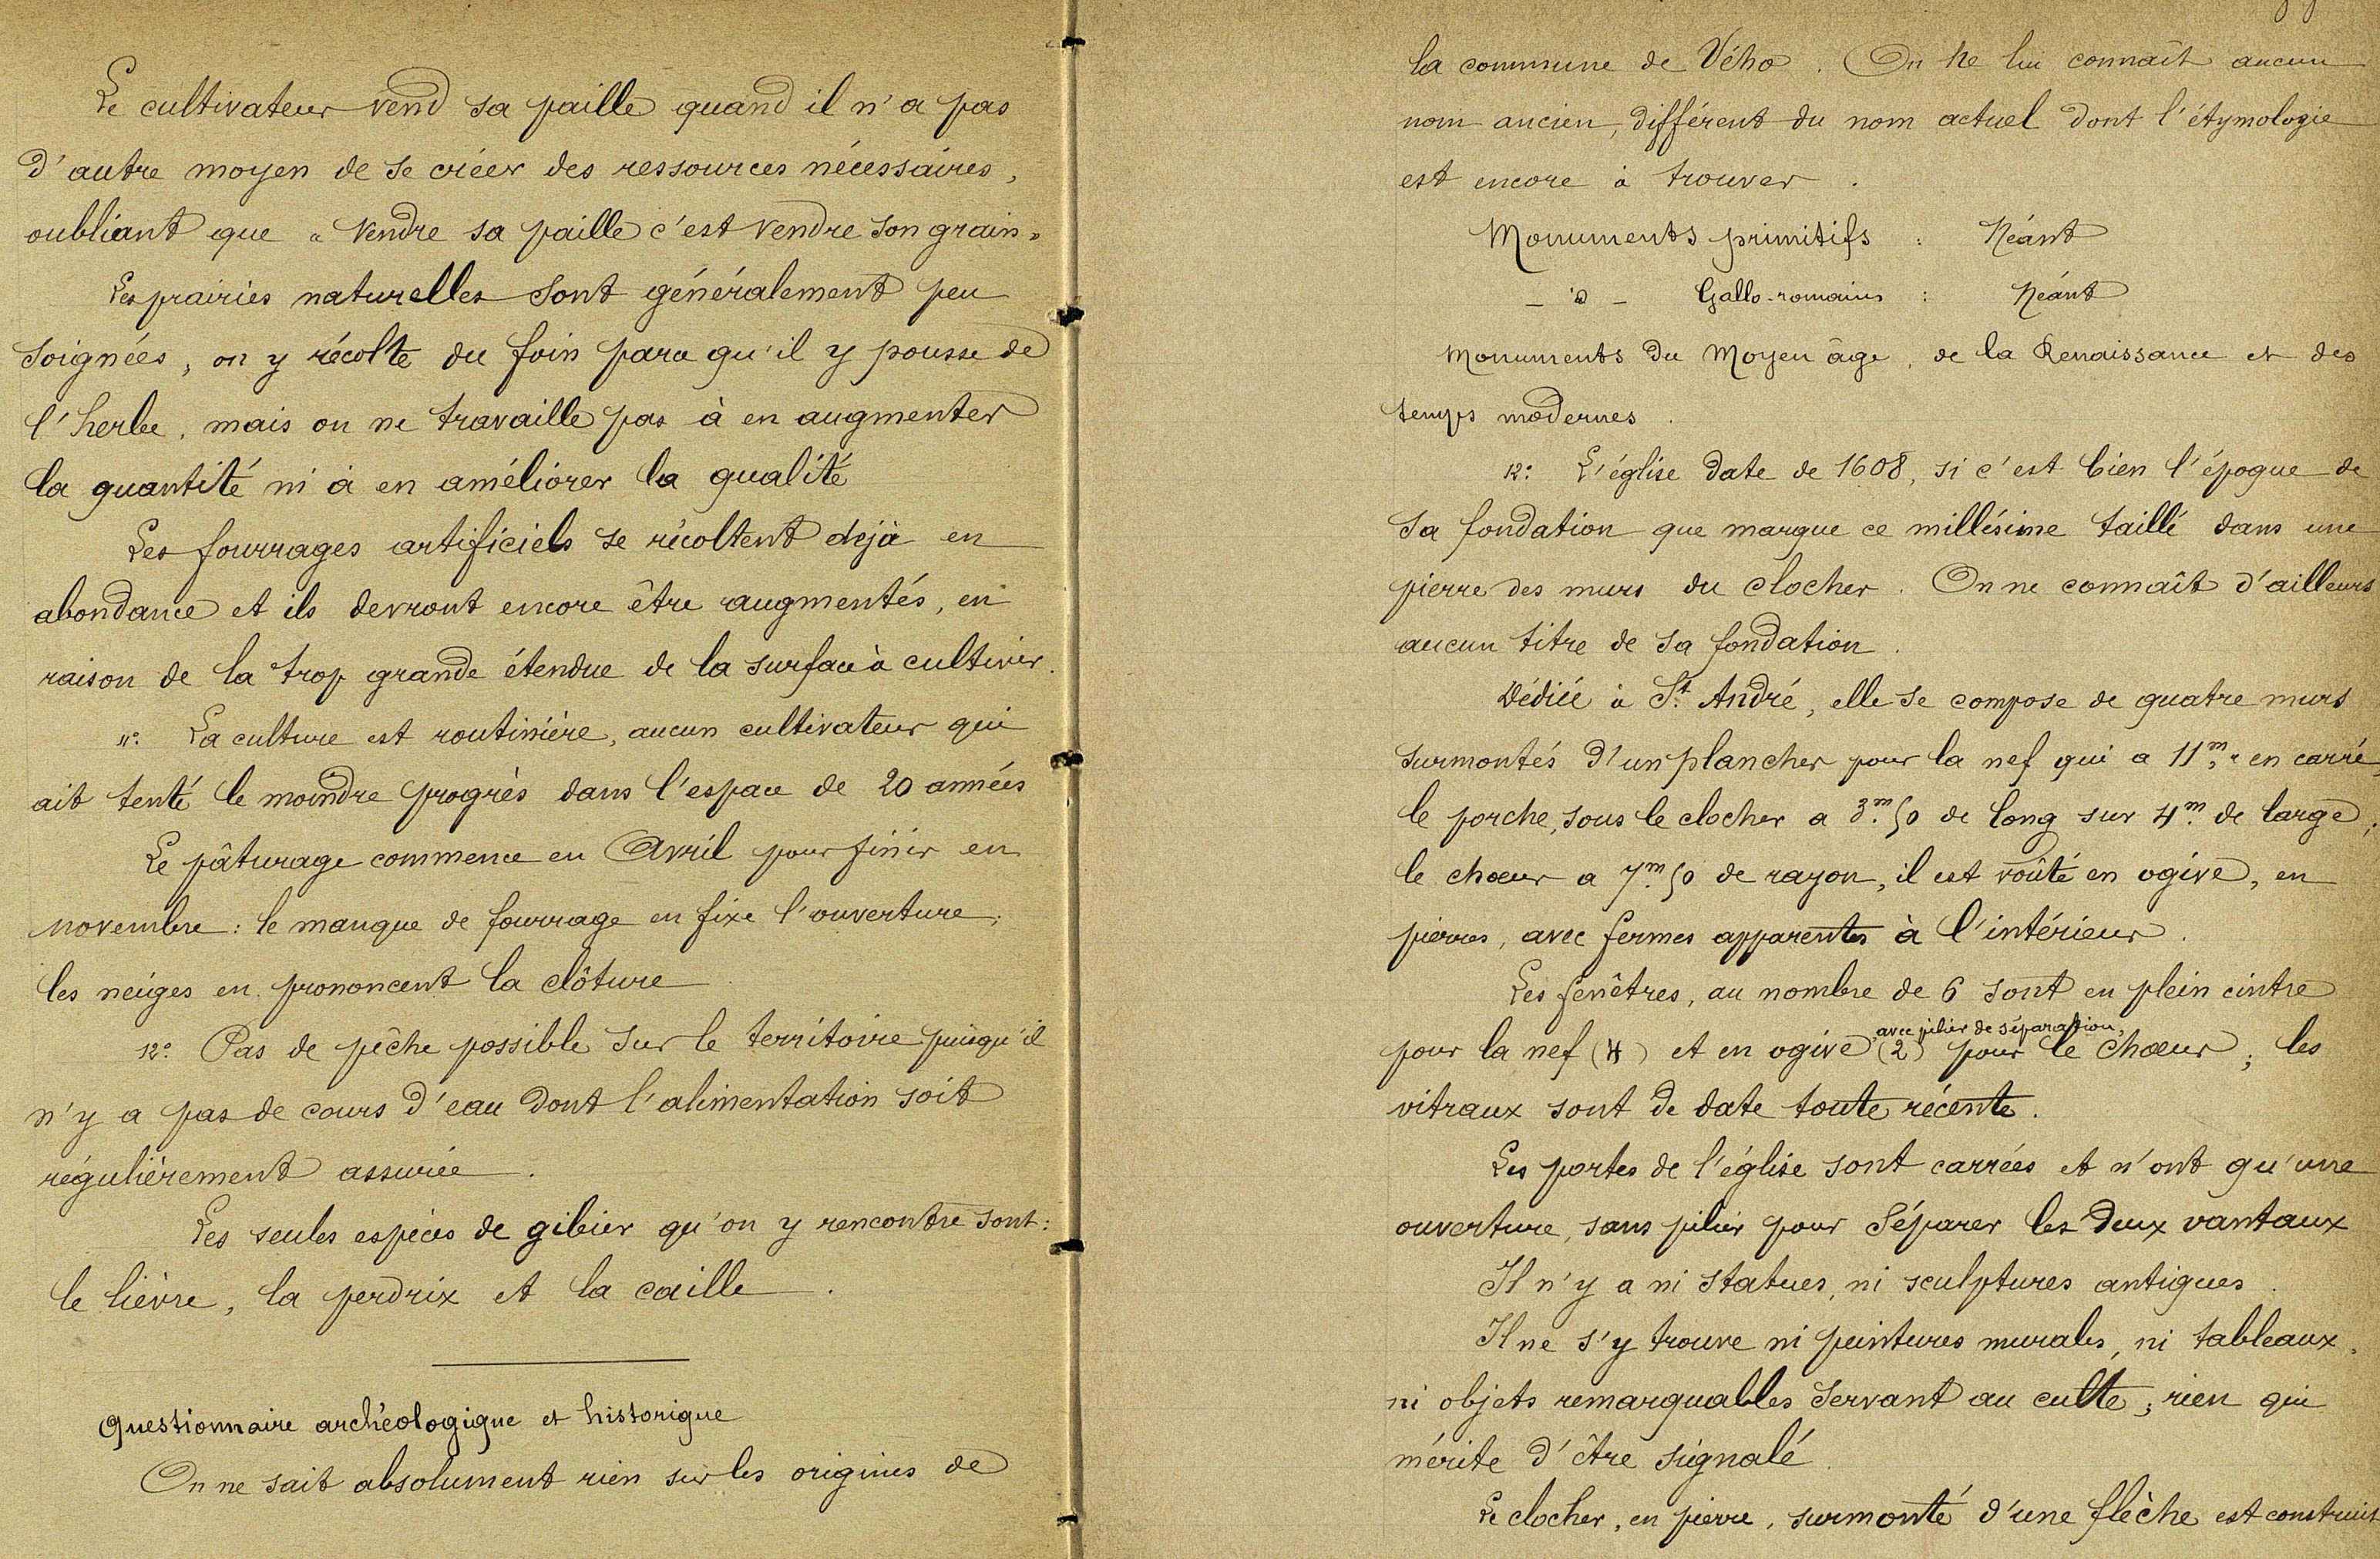 Le cultivateur vend sa paille quand il n'a pas
d'autre moyen de se créer des ressources nécessaires,
oubliant que " Vendre sa paille c'est vendre son grain "
Les prairies naturelles sont généralement peu
soignées, on y récolte du foin parce qu'il y pousse de
l'herbe, mais on ne travaille pas à en augmenter
la quantité ni à en améliorer la qualité
Les fourrages artificiels se récoltent dejà en
abondance et ils devront encore être augmentés, en
raison de la trop grande étendue de la surface à cultiver.
11° La culture est routinière, aucun cultivateur qui
ait tenté le moindre progrès dans l'espace de 20 années
Le pâturage commence en Avril pour finir en
novembre : le manque de fourrage en fixe l'ouverture,
les neiges en prononcent la clôture
12° Pas de pêche possible sur le territoire puisqu'il
n'y a pas de cours d'eau dont l'alimentation soit
régulièrement assurée.
Les seules espèces de gibier qu'on y rencontre sont :
le lièvre, la perdrix et la caille.
Questionnaire archéologique et historique
On ne sait absolument rien sur les origines de
la commune de Vého. On ne lui connaît aucun
nom ancien, différent du nom actuel dont l'étymologie
est encore à trouver.
Monuments primitifs : Néant
- id - Gallo-romains : Néant
Monuments du Moyen âge, de la Renaissance et des
temps modernes.
12° L'église date de 1608, si c'est bien l'époque de
sa fondation que marque ce millésime taillé dans une
pierre des murs du clocher. On ne connaît d'ailleurs
aucun titre de sa fondation.
Dédiée à St. André, elle se compose de quatre murs
surmontés d'un plancher pour la nef qui a 11m," en carré
le porche, sous le clocher a 3m.50 de long sur 4m. de large,
le chœur a 7m.50 de rayon, il est voûté en ogive, en
pierres, avec fermes apparentes à l'intérieur.
Les fenêtres, au nombre de 6 sont en plein cintre
avec pilier de séparation,
pour la nef (4) et en ogive (2) pour le chœur ; les
vitraux sont de date toute récente.
Les portes de l'église sont carrées et n'ont qu'une
ouverture, sans pilier pour séparer les deux vantaux
Il n'y a ni statues, ni sculptures antiques.
Il ne s'y trouve ni peintures murales, ni tableaux,
ni objets remarquables servant au culte ; rien qui
mérite d'être signalé.
Le clocher, en pierre, surmonté d'une flèche est construit